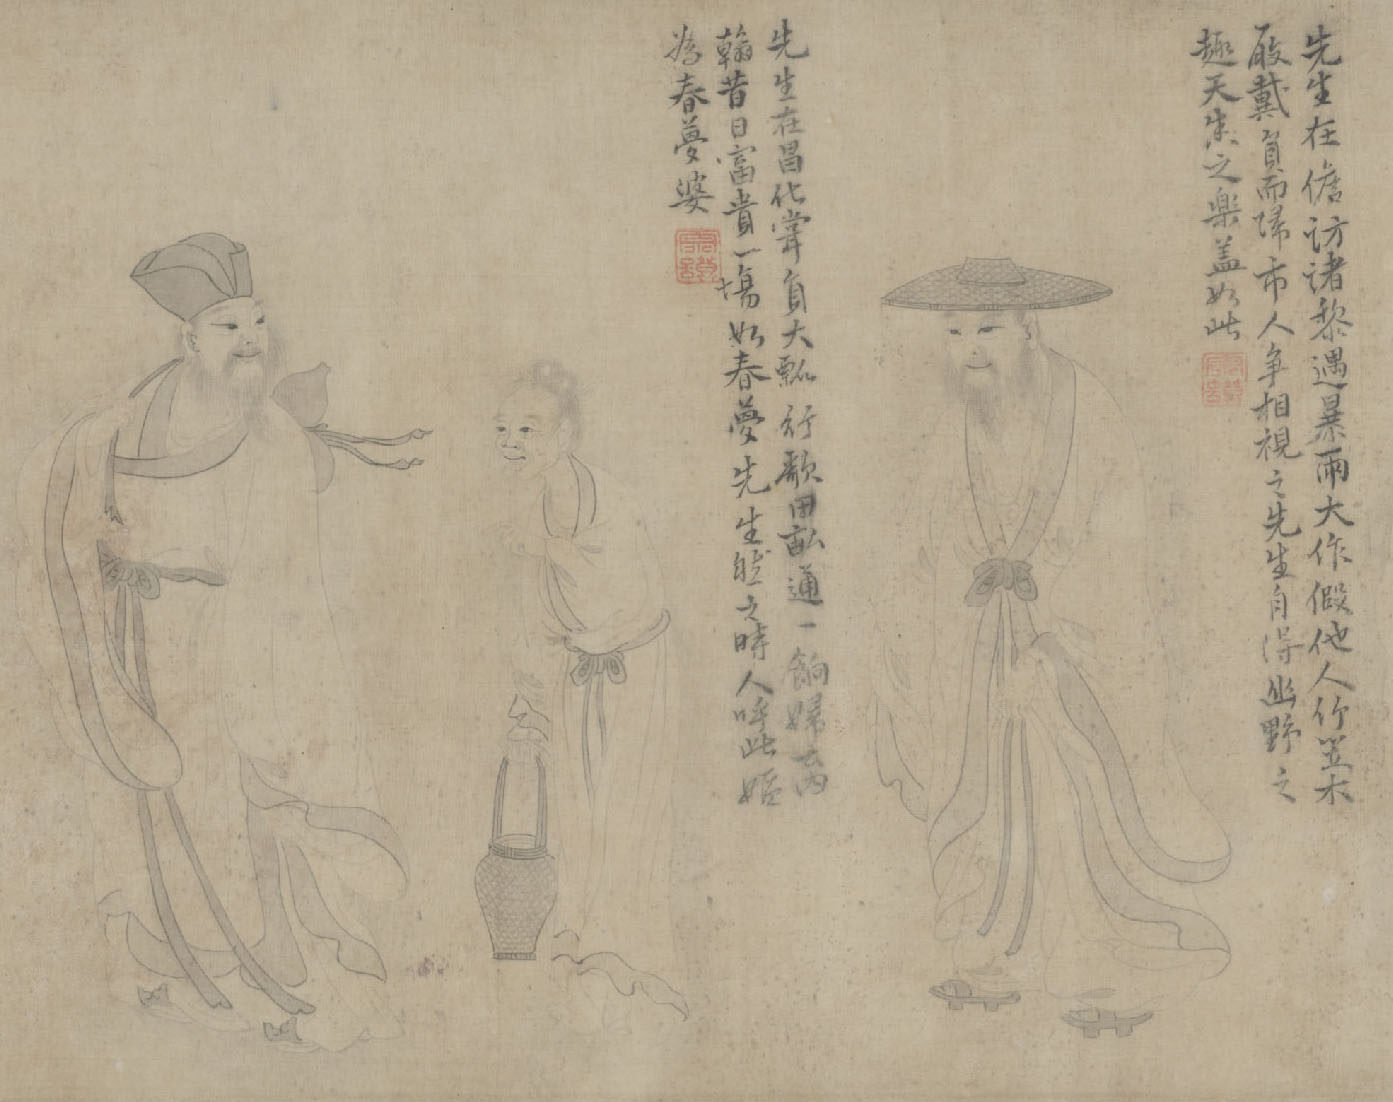 先生在儋訪諸黎遇暴雨大作假他人竹笠木
屐戴負而歸市人爭相視之先生自得幽野之
趣天之楽盖如此
先生在昌化嘗負大瓢行歌田畝通一餉婦云內
翰昔日富貴一場如春夢先生然之時人呼此嫗
為春夢婆